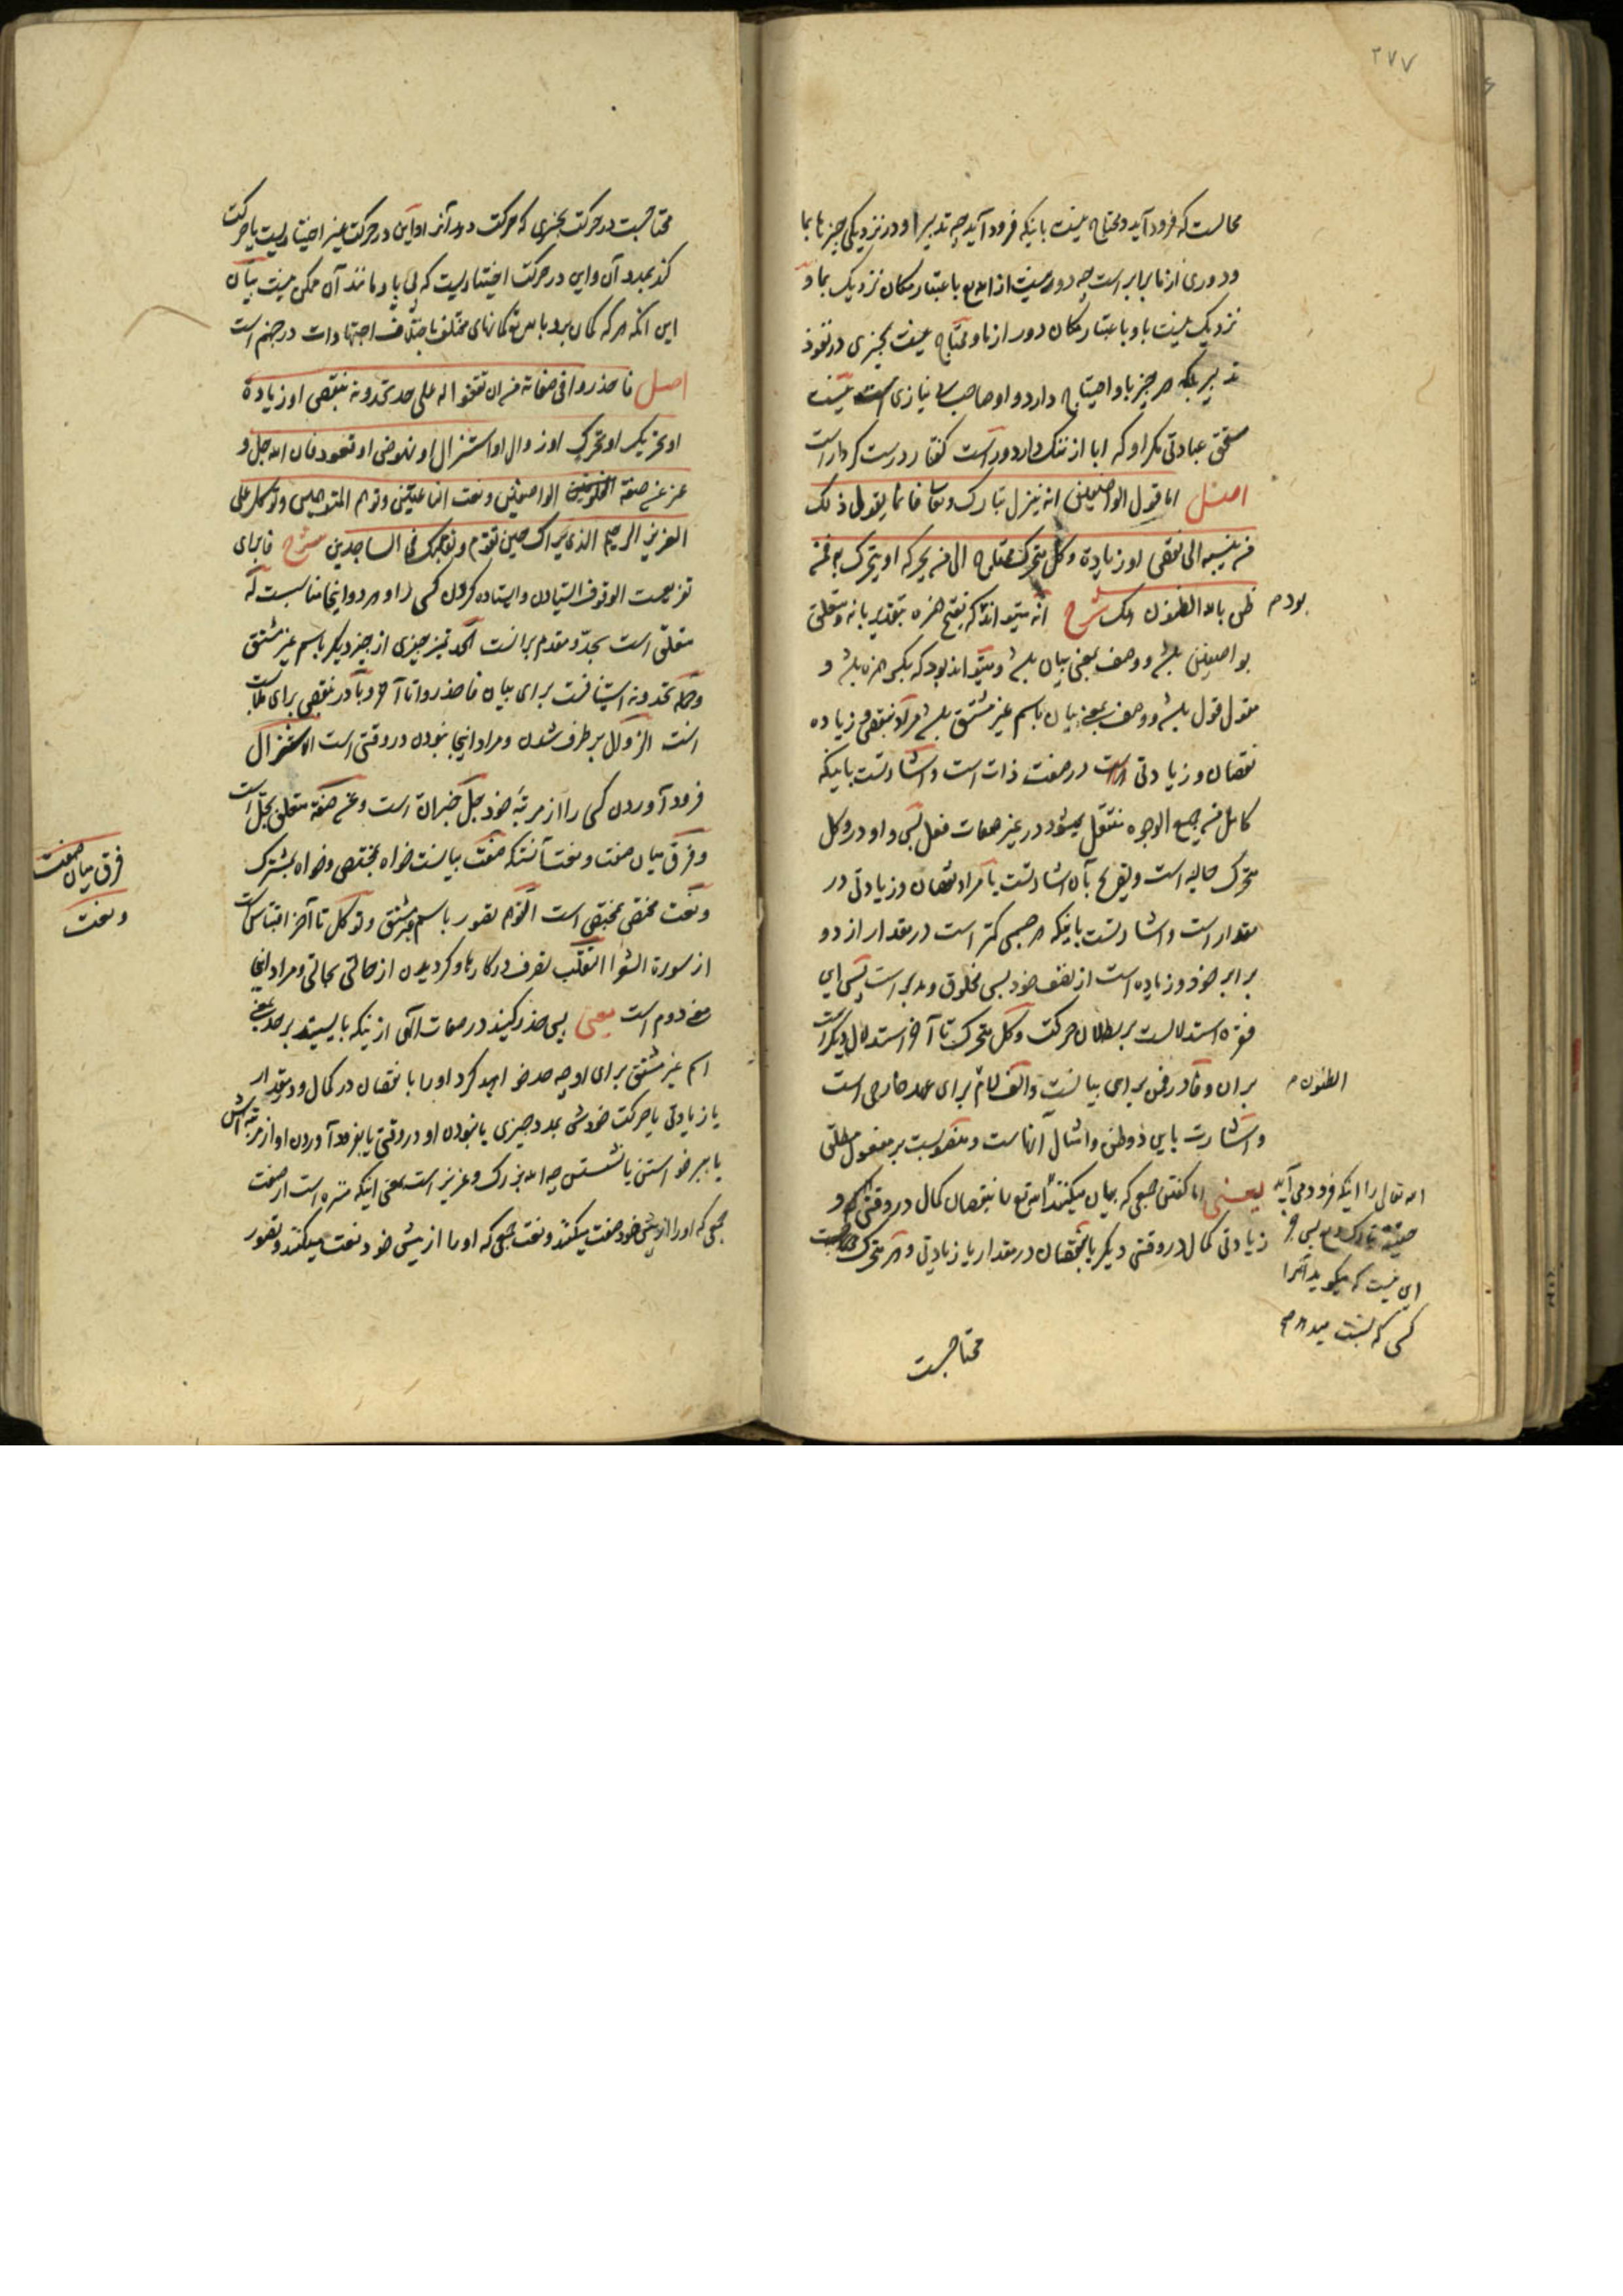 ۲۷۷
محالست که فرود آید و محتاج نیست باینکه فرود آید چه تدبیر او در نزدیکی چیزها بما
و دوری از ما برابر است چه دور نیست از اسع باعتبار مکان نزدیک بما و
نزدیک نیست باو باعتبار مکان دور از ما و محتاج نیست بچیزی در نفوذ
تدبیر بلکه هر چیز باو احتیاج دارد و او صاحب بی نیازی است نیست
مستحق عبادتی مگر او که ابا از ننگ دارد و راست گفتار درست کردار است
اصل اما قول الواصفین انه ینزل تبارک وتعا فانما یقول ذلک
من ینسبه الی نقص او زیادة وکل متحرک محتاج الی من یحرکه او یتحرک به فمن
ظن بالله الظنون هلک شرح انه میتواند که بفتح همزه بتقدیر بانه و متعلق
بودم
بواصفین باشد و وصف بمعنی بیان باشد و میتواند بود که بکسر همزه باشد و
مقول قول باشد و وصف بمعنی بیان باسم غیر مشتق باشد مراد بنقص و زیاده
نقصان و زیادتی در صفت ذات است و اشارتست باینکه
کامل من جمیع الوجوه منتقل نمیشود در غیر صفات فعل پس واو در وکل
متحرک حالیه است و تصریح بآن اشارتست یا مراد نقصان و زیادتی در
مقدار است و اشارتست باینکه هر جسمی کمتر است در مقدار از دو
برابر خود و زیاده است از نصف خود پس مخلوق و مدبر است پس این
فقره استدلالست بر بطلان حرکت وکل متحرک تا آخر استدلال دیگر است
بران و فا در فمن برای بیانست و الف لام برای عهد خارجی است
الظنون م
و اشارت باین دو ظن و امثال آنهاست و منصوبست بر مفعول مطلق
یعنی اما گفتن جمعی که بیان میکنند اسع را بنقصان کمال در وقتی و
اسه تعالی را اینکه فرود می آید
زیادتی کمال در وقتی دیگر یا نقصان در مقدار یا زیادتی و هر متحرک
این نیست که میگوید آنرا
کسی که نسبت میدهد
محتاجست
محتاجست در حرکت بچیزی که حرکت دهد آنرا و این در حرکت غیر اختیاریست یا حرکت
کند بمدد آن و این در حرکت اختیاریست که بی پا و مانند آن ممکن نیست بیان
این آنکه هر که گمان برد باسع گمانهای مختلف باختلاف اجتهادات در جهنم است
اصل فاحذروا فی صفاته من ان تقفوا له علی حد تحدونه بنقص او زیادة
او تحریک او تحرک او زوال او استنزال او نهوض او قعود فان الله جل و
عز عن صفة الواصفین ونعت الناعتین وتوهم المتوهمین وتوکل علی
العزیز الرحیم الذی یراک حین تقوم وتقلبک فی الساجدین شرح فا برای
تفریعست الوقوف ایستادن و ایستاده کردن کسی را و هر دو اینجا مناسبست له
متعلق است بحد و مقدم برانست الحد تمیز چیزی از چیز دیگر باسم غیر مشتق
وجمله تحدونه استینافست برای بیان فاحذروا تا آخر و با در بنقص برای ملابست
است الزوال برطرف شدن و مراد اینجا نبودن در وقتی است الاستنزال
فرود آوردن کسی را از مرتبه خود جل خبر ان است و عن صفة متعلق بجل است
و فرق میان صفت و نعت آنستکه صفت بیانست خواه بمختص و خواه بمشترک
فرق میان صفت
و نعت
و نعت مختص بمختص است التوهم تصور باسم غیر مشتق و توکل تا آخر اقتباس است
از سورة الشعرا التقلب تصرف در کارها و گردیدن از حالتی بحالتی و مراد اینجا
معنی دوم است یعنی پس حذر کنید در صفات الهی از اینکه بایستید بر حد بمعنی
اسم غیر مشتق برای او چه حد خواهید کرد او را با نقصان در کمال و در مقدار
یا زیادتی یا حرکت خودش بمدد چیزی یا نبودن او در وقتی یا بفرود آوردن او از مرتبه اش
یا ببرخواستن یا نشستن چه اسه بزرگ و عزیز است بمعنی اینکه منزه است از صفت
جمعی که او را از پیش خود صفت میکنند و نعت جمعی که او را از پیش خود نعت میکنند و تصور